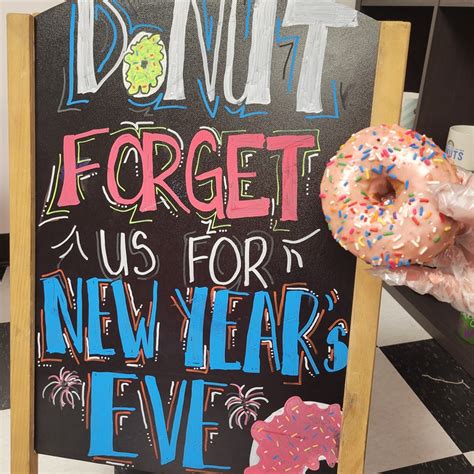 DONUT
FORGET
US FOR
NEW YEAR'S
EVE